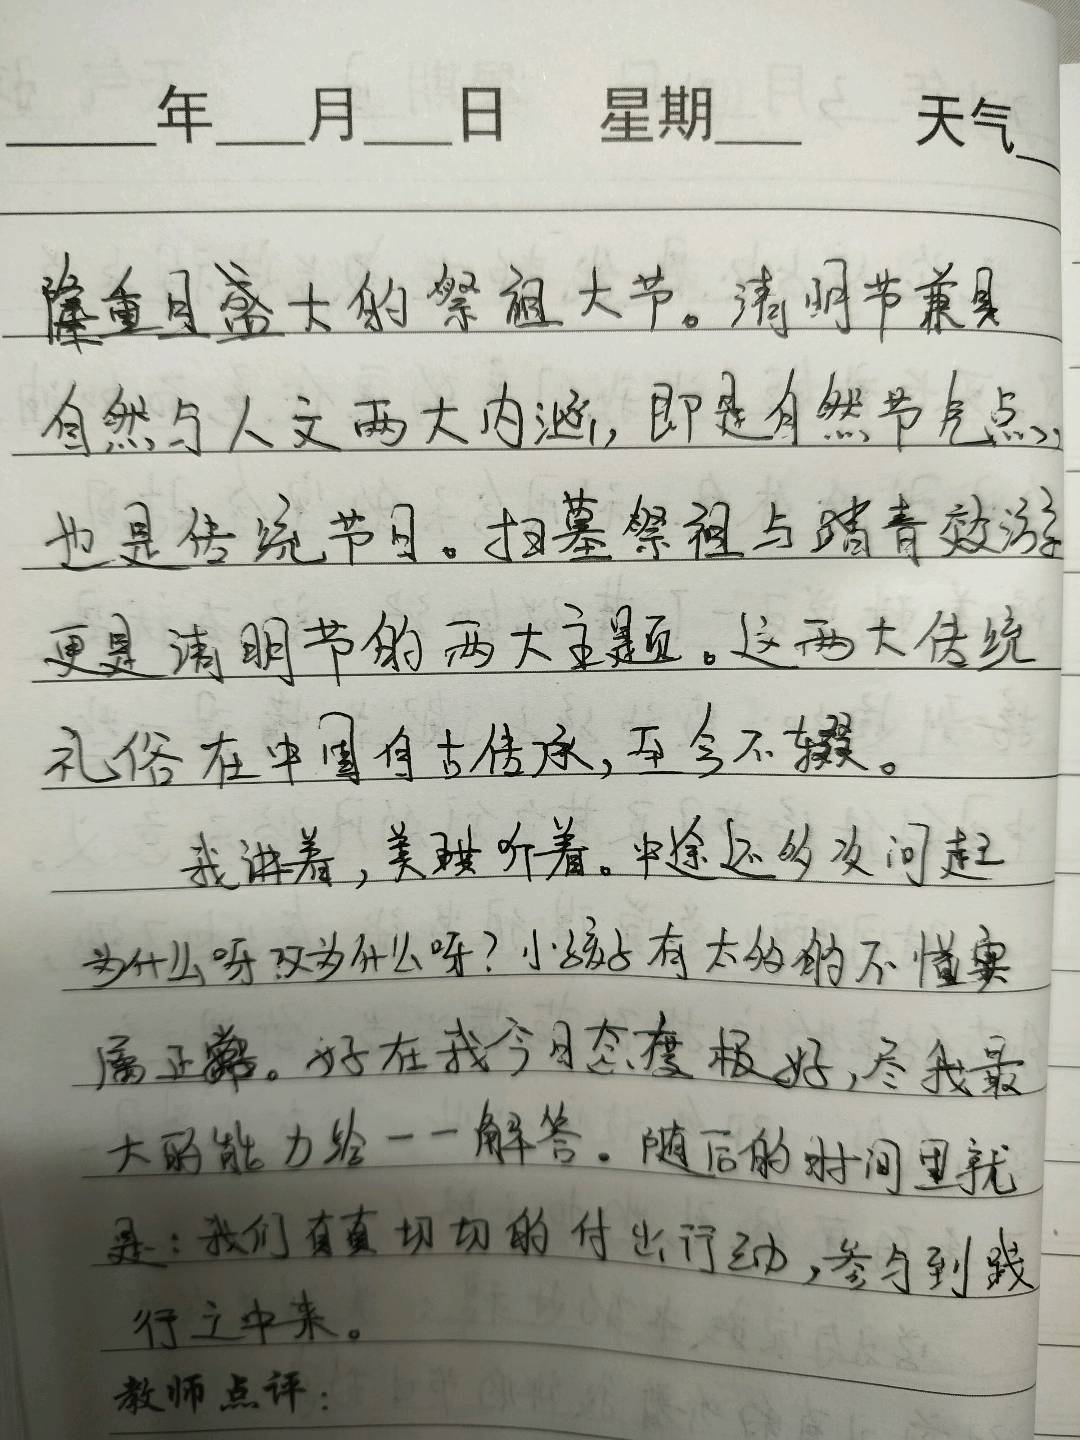 年 月 日 星期 天气
隆重且盛大的祭祖大节。清明节兼具
自然与人文两大内涵,即是自然节气点,
也是传统节日。扫墓祭祖与踏青效游
更是清明节的两大主题。这两大传统
礼俗在中国自古传承,至今不辍。
我讲着,美琪听着。中途还多次问起
为什么呀?又为什么呀?小孩子有太多的不懂实
属正常。好在我今日态度极好,尽我最
大的能力给一一解答。随后的时间里就
是:我们真真切切的付出行动,参与到践
行之中来。
教师点评: